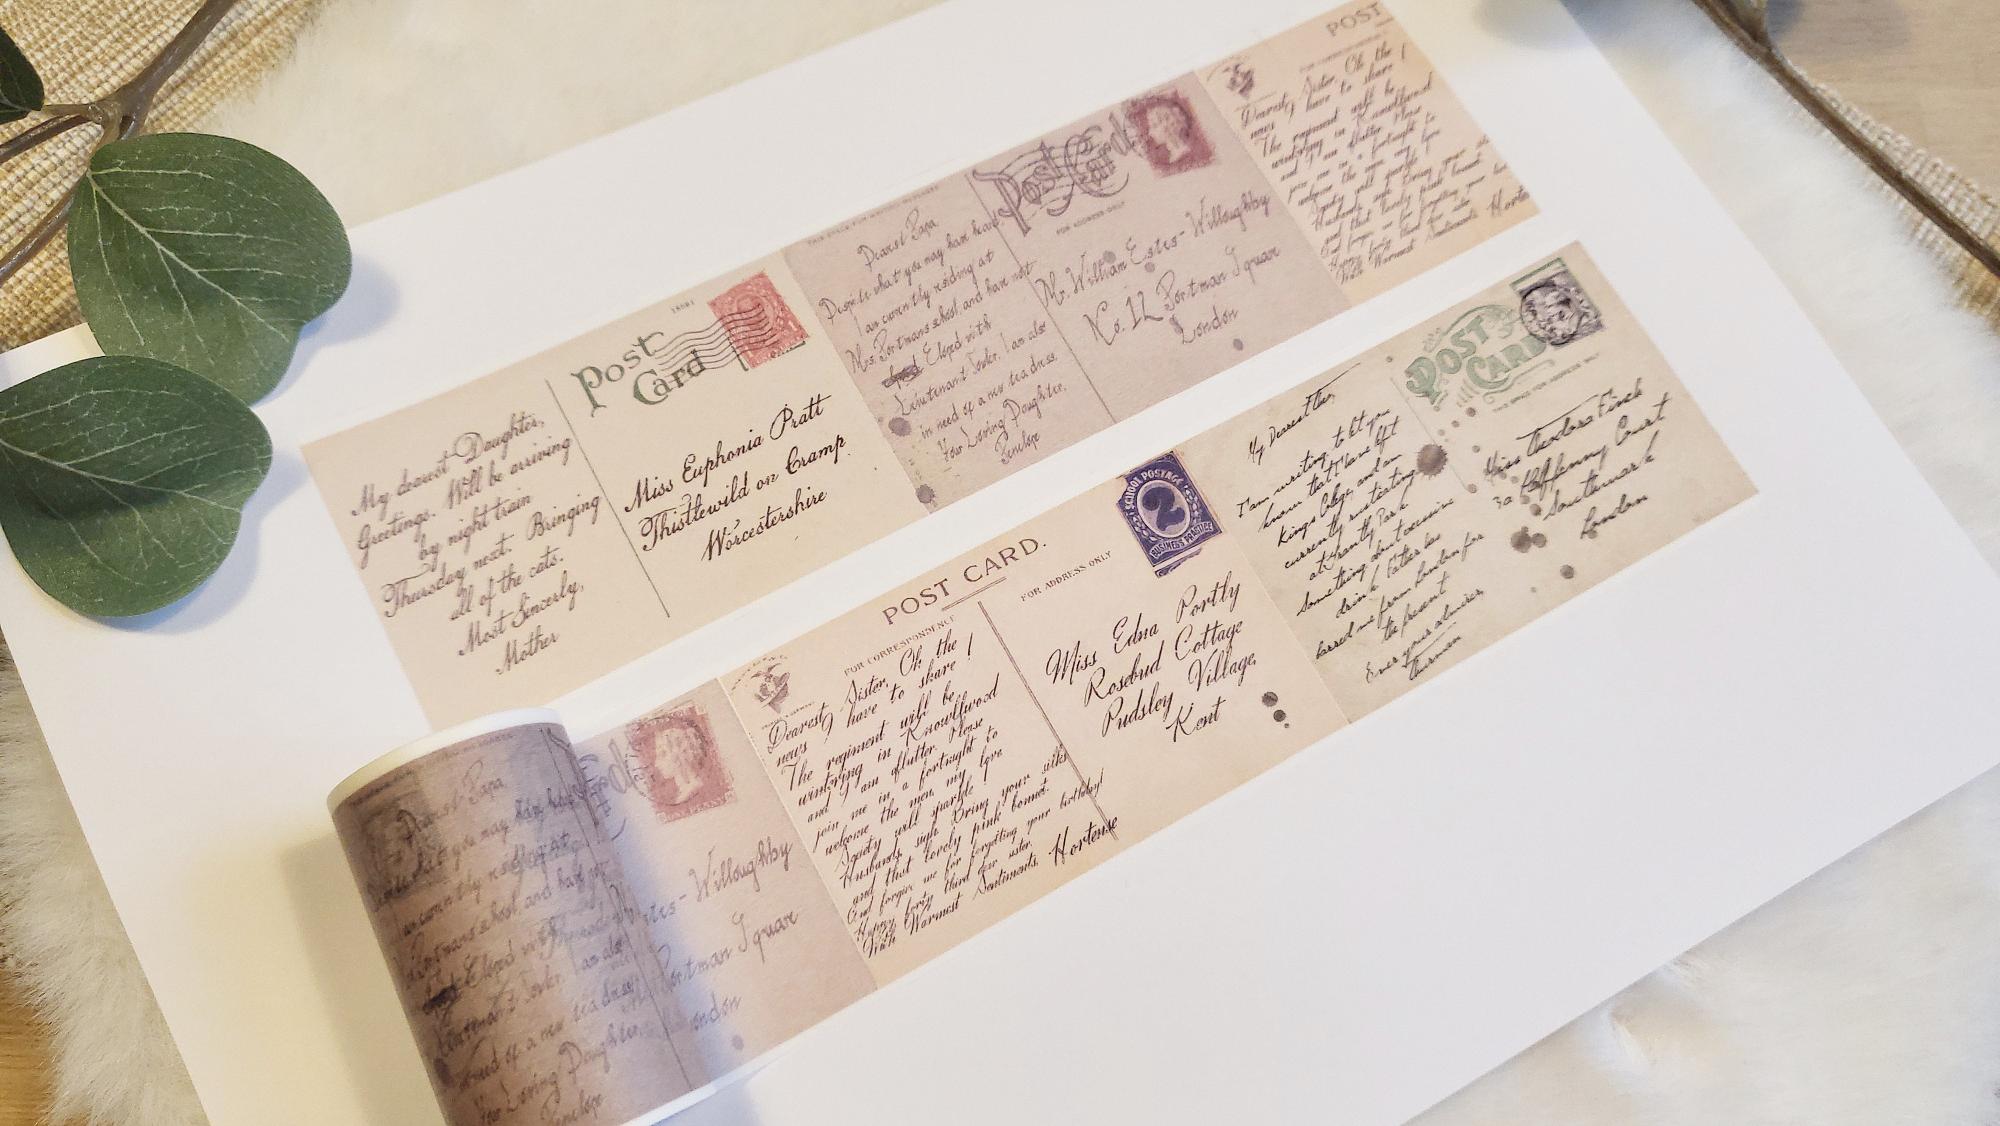 My dearest Daughter,
Greetings. Will be arriving
by night train
Thursday next. Bringing
all of the cats.
Most Sincerely,
Mother
18081
Post
Card
Miss Euphonia Pratt
Thistlewild on Cramp
Worcestershire
Dearest Papa
Despite what you may have heard
I am currently residing at
Mrs. Portmans school, and have not
Eloped with
Lieutenant Fowler. I am also
in need of a new tea dress.
Your Loving Daughter,
Penelope
Post Card
FOR ADDRESS ONLY
Mr. William Estes-Willoughby
No. 12 Portman Square
London
POST
Dearest Sister, Oh the
news I have to share!
The regiment will be
wintering in Knowllwood
and I am aflutter. Please
join me in a fortnight to
welcome the men, my love
Society will sparkle!
Husbands, sigh. Bring your
and that lovely pink bonnet.
And forgive me for forgetting your
Happy forty third dear sister.
With Warmest Sentiments, Horten
Dearest Papa
what you may have
currently residing at
Portmans school, and have not
Eloped with
Lieutenant Fowler. I am also
need of a new tea dress
Your Loving Daughter,
Penelope
Estes-Willoughby
Portman Square
London
POST CARD.
FOR CORRESPONDENCE
FOR ADDRESS ONLY
Dearest Sister, Oh the
news I have to share!
The regiment will be
wintering in Knowllwood
and I am aflutter. Please
join me in a fortnight to
welcome the men, my love
Society will sparkle!
Husbands, sigh. Bring your silks
and that lovely pink bonnet.
And forgive me for forgetting your birthday!
Happy forty third dear sister.
With Warmest Sentiments, Hortense
SCHOOL POSTAGE
2
BUSINESS PRACTICE
Miss Edna Portly
Rosebud Cottage
Pudsley Village,
Kent
My Dearest Theo,
I am writing to let you
know that I have left
Kings College, and am
currently rusticating
at Grantly Park.
Something about excessive
drink. Father has
barred me from London for
the present
Ever your admirer,
Thurman
POST
CARD
THIS SPACE FOR ADDRESS ONLY
Miss Theodora Finch
3a Halfpenny Court
Southwark
London